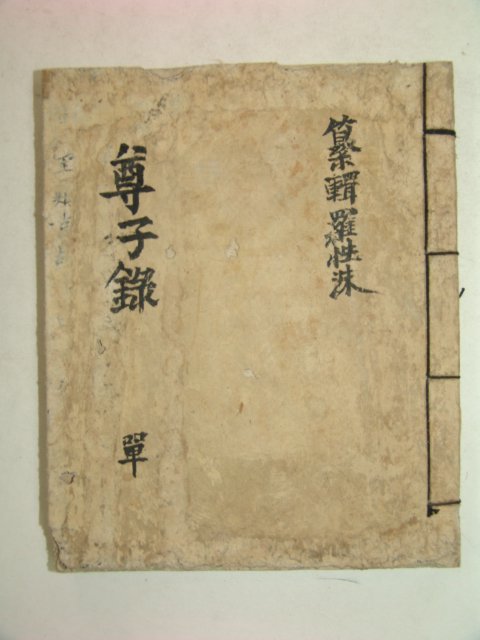 纂輯羅性洙
尊子錄
單